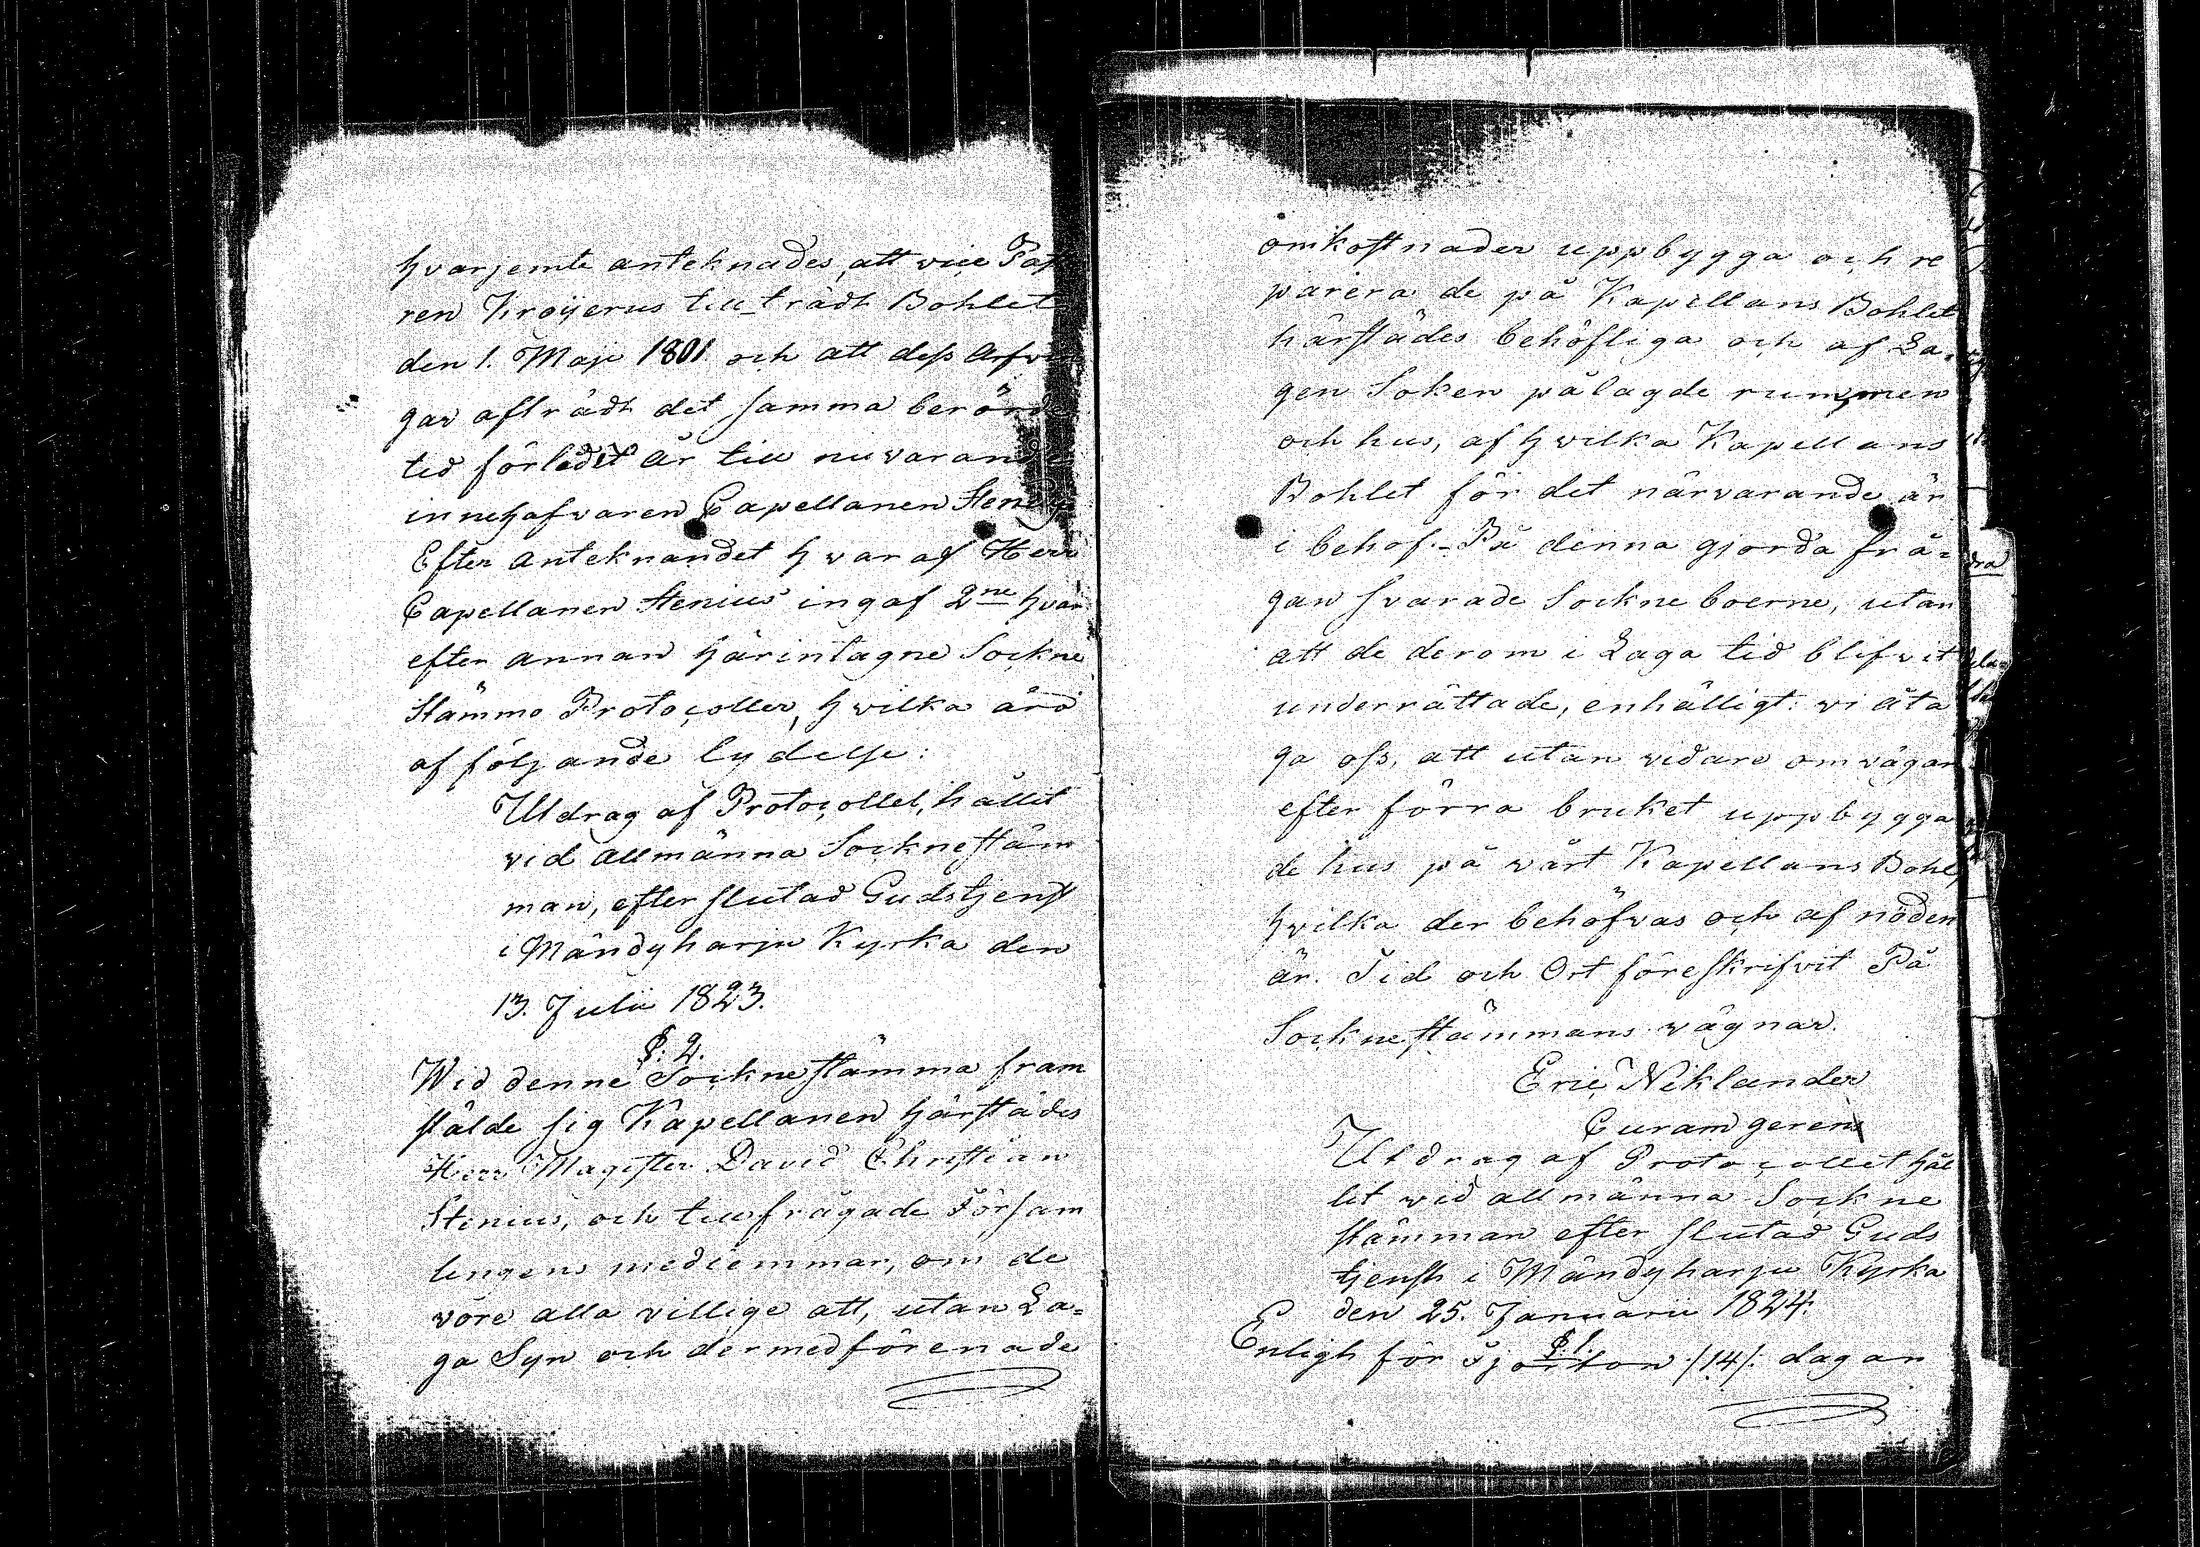 hvarjemte anteknades, att vice Pasto
ren Kröÿerus till-trädt Bohlet
den 1. Maji 1801 och att dess Arfvin
gar afträdt det samma berörde
tid förledit År till nuvarande
innehafvaren Capellanen Stenius
Efter Anteknandet hvaraf Herr
Capellanen Stenius ingaf 2ne hvar
efter annan härintagne Sockne
Stämmo Protocoller, hvilka äro
af följande lydelse:
Utdrag af Protocollet, hållit
vid allmänna Socknestäm
man, efter slutad Gudstjenst
i Mändyharju Kyrka den
13. Julii 1823.
§: 2.
Wid denne Socknestämma fram
stälde sig Kapellanen härstädes
Herr Magister David Christian
Stenius, och tillfrågade Försam
lingens medlemmar, om de
vore alla villige att, utan La=
ga Syn och dermed förenade
omkostnader uppbygga och re
parera de på Kapellans Bohlet
härstädes behöfliga och af La=
gen Soken pålagde rummen
och hus, af hvilka Kapellans
Bohlet för det närvarande är
i behof. På denna gjorda frå=
gan svarade Sockneboerne, utan
att de derom i Laga tid blifvit
underrättade, enhälligt: vi åta
ga oss, att utan vidare omvägar
efter förra bruket uppbygga
de hus på vårt Kapellans Bohl,
hvilka der behöfvas och af nöden
är. Tid och Ort föreskrifvit På
Socknestämmans vägnar.
Eric Niklander
Curam gerens
Utdrag af Protocollet hål
let wid allmänna Sockne
stämman efter slutad Guds
tjenst i Mändyharju Kyrka
den 25. Januarii 1824.
§: 1.
Enligt för Fjorton /:14/: dagar